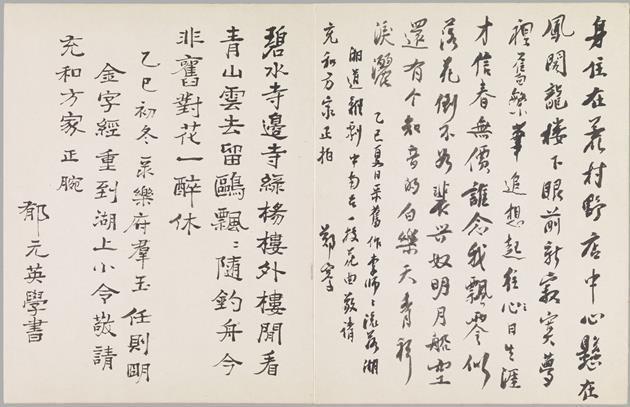 身住在荒村野店中心懸在
鳳闕龍樓下眼前新寂寞夢
裡舊繁華 追想起往心日生涯
才信春無價誰念我飄零似
落花倒不如裴興奴明月船空
還有个知音的白樂天青衫
淚灑 乙巳夏日采舊作李師〻流落湖
湘道雜劇中南呂一枝花曲敬請
充和方家正拍 鄭騫
碧水寺邊寺綠楊樓外樓閒看
青山雲去留鷗飄〻隨釣舟今
非舊對花一醉休
乙巳初冬彔樂府羣玉任則明
金字經重到湖上小令敬請
充和方家正腕
郁元英學書